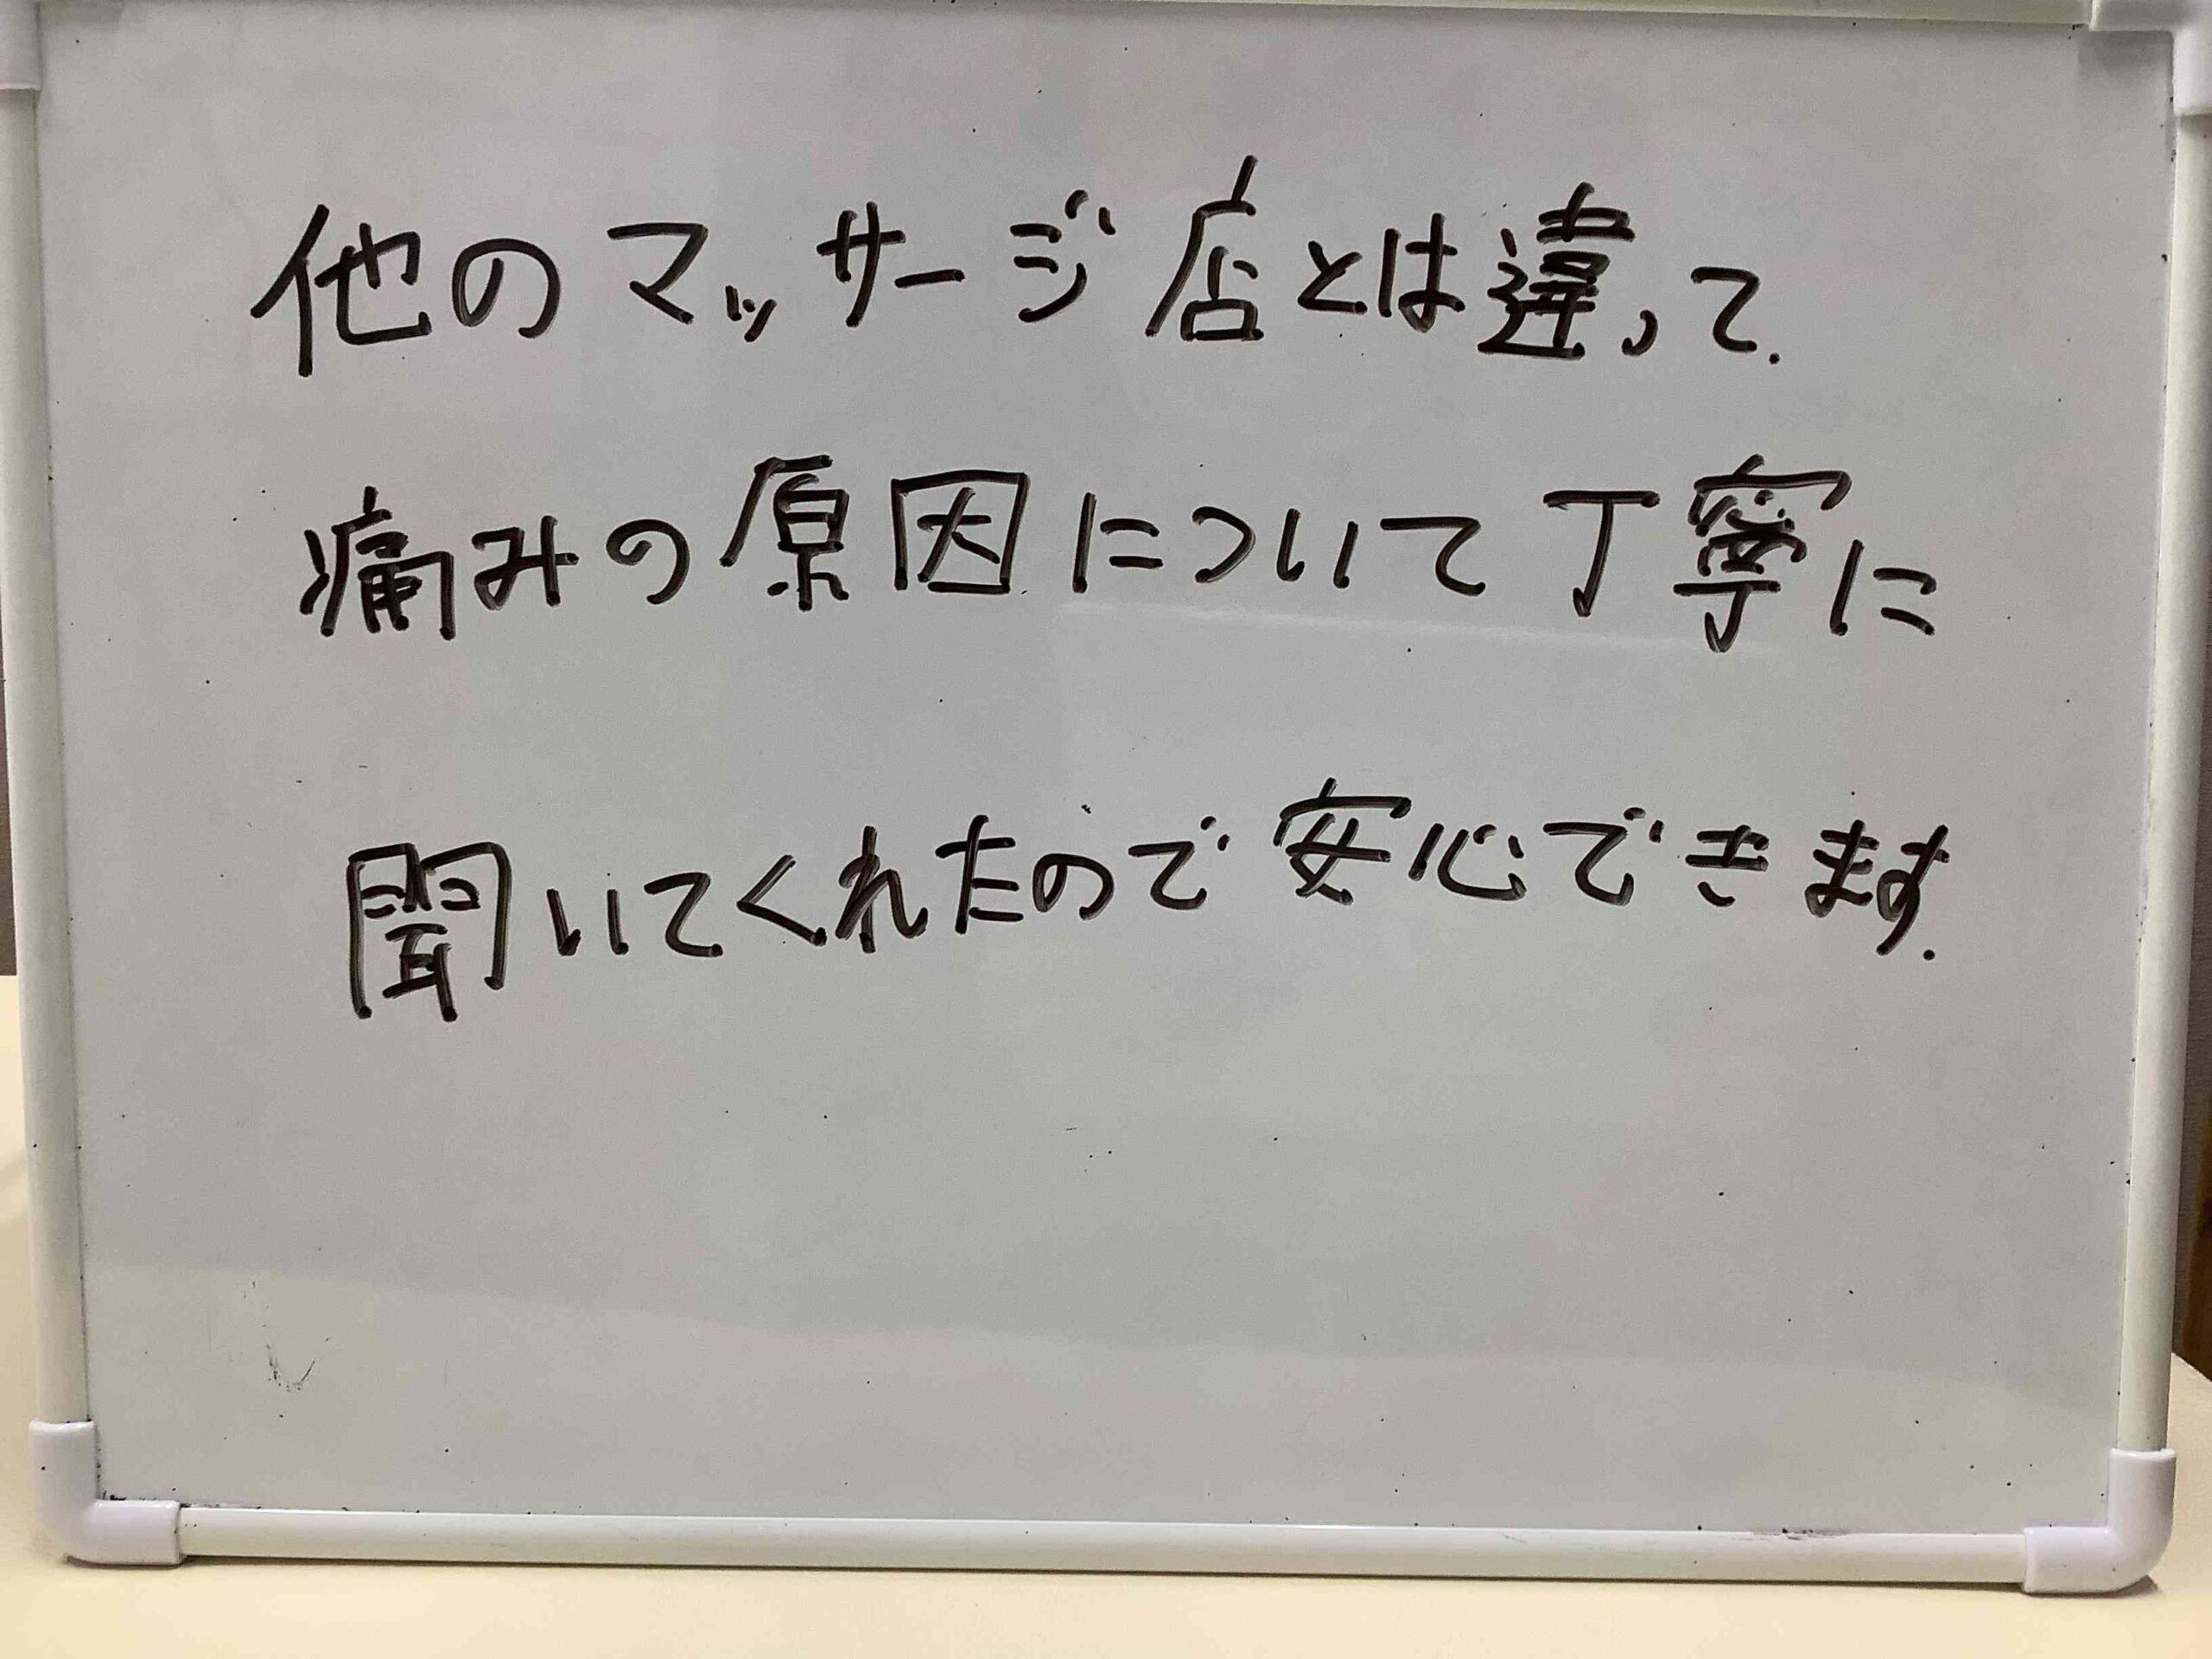 他のマッサージ店とは違って.
痛みの原因について丁寧に
聞いてくれたので安心できます.